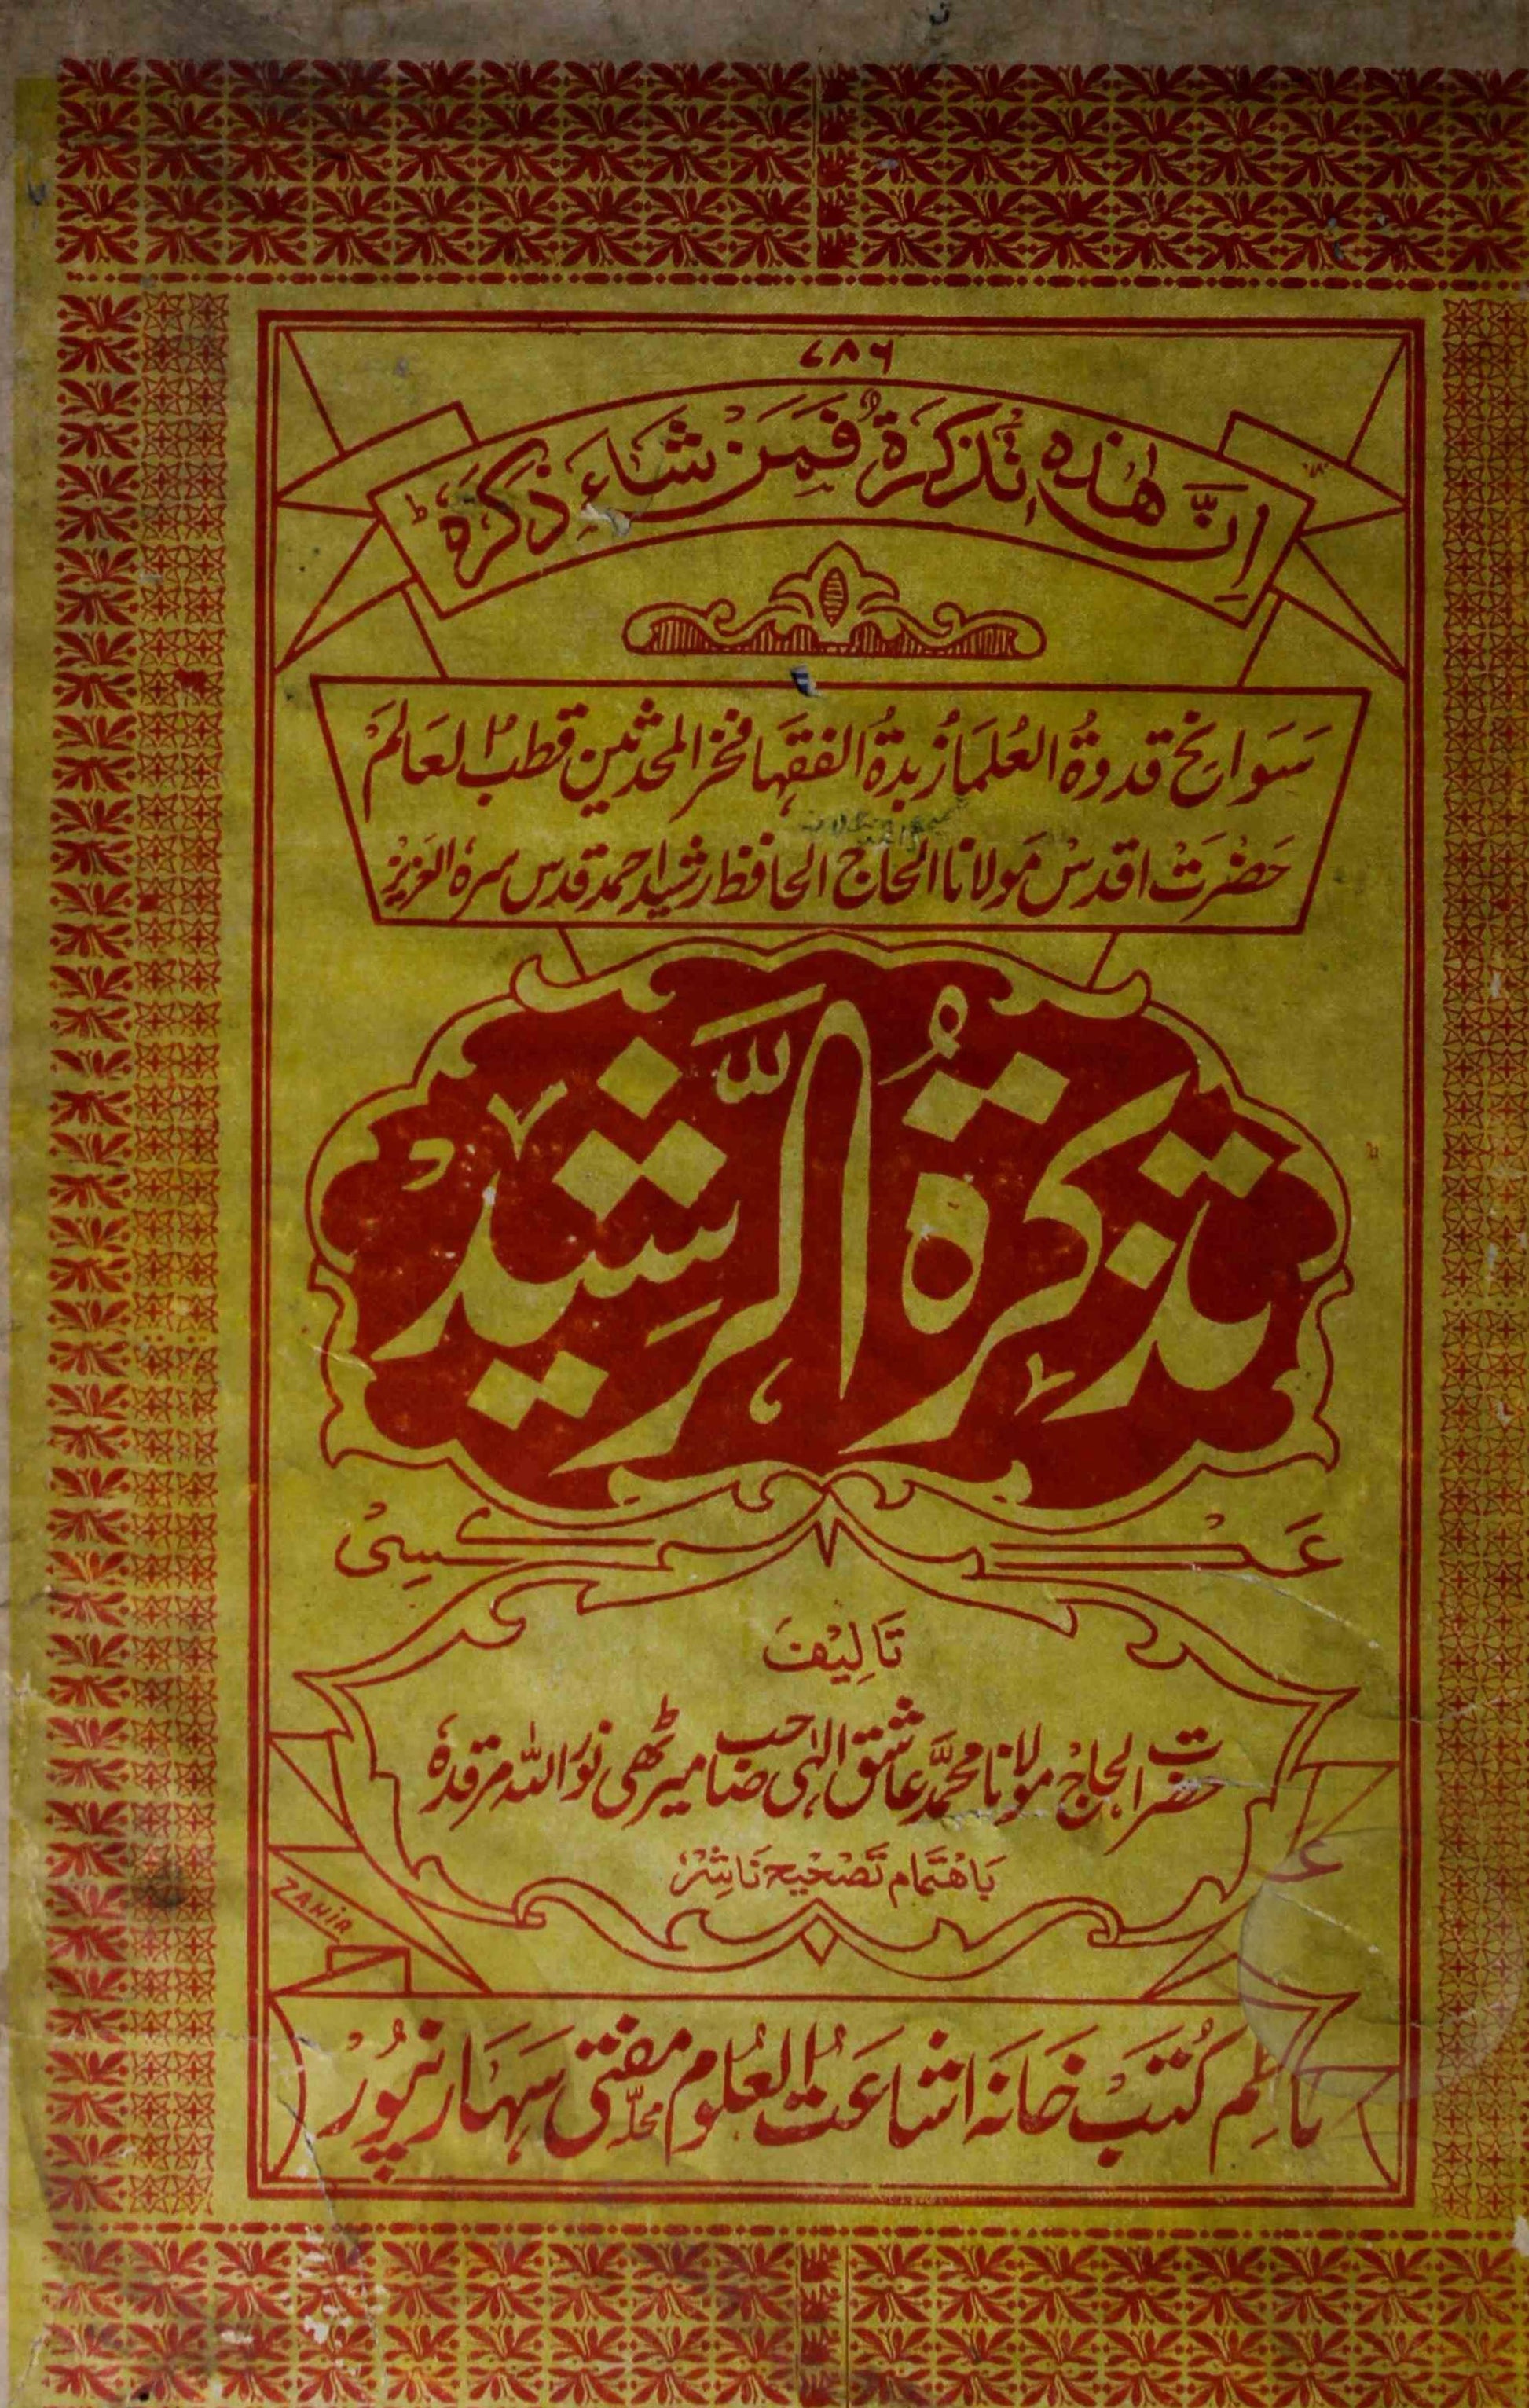 ۷۸۶
اِنَّ هٰذِهٖ تَذْكِرَةٌ فَمَنْ شَاءَ ذَكَرَهٗ ط
سَوَانح قدوۃُ العُلمَا زُبدۃُ الفقہَا فخر المحدثین قطبُ العَالمْ
حَضْرَتْ اقدسْ مَولانا الحاج الحافظ رشید احمد قدس سرہٗ العَزیزْ
تذکرۃُ الرَّشِیْد
عَکسِیْ
تَالِیْف
حضرت الحاج مولانا محمَّد عاشق الٰہی صاحب میرٹھی نوَّر اللہ مرقدہٗ
بَاہْتمَام تَصْحِیْح نَاشِرْ
ZAHIR
ناظِم کُتبْ خَانہَ اشَاعَتُ العُلوم محلّہ مفتی سَہَارَنپُورْ